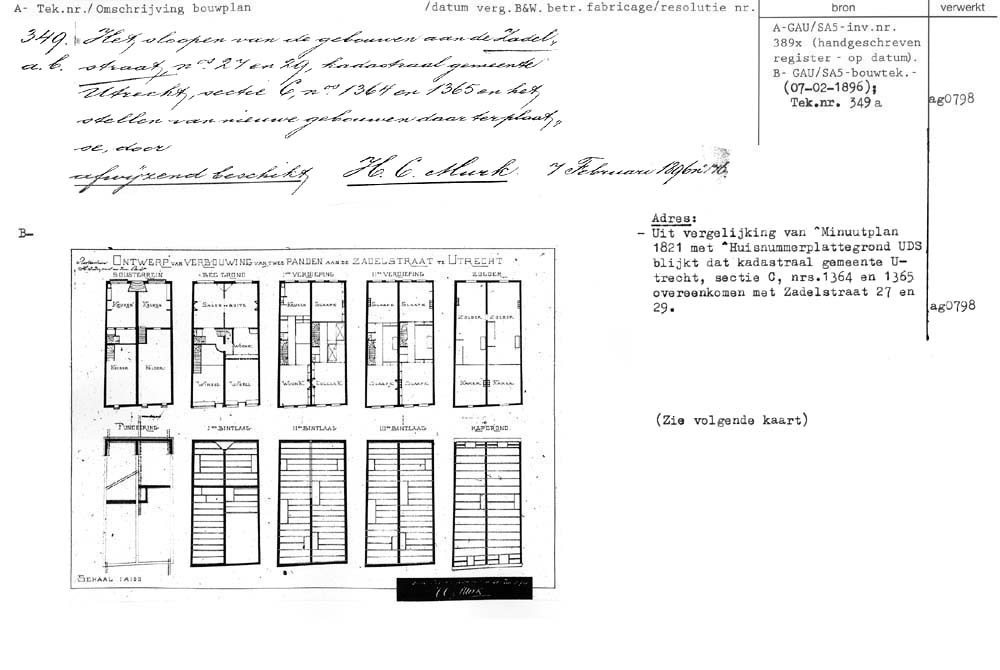 A- Tek.nr./Omschrijving bouwplan /datum verg.B&W. betr. fabricage/resolutie nr. bron verwerkt
349. Het sloopen van de gebouwen aan de Zadel„
a.b. straat, nrs 27 en 29, kadastraal gemeente
Utrecht, sectie C, nos 1364 en 1365 en het
stellen van nieuwe gebouwen daar ter plaat„
se, door
afwijzend beschikt, H. C. Murk. 7 Februari 1896
A-GAU/SA5-inv.nr.
389x (handgeschreven
register - op datum).
B- GAU/SA5-bouwtek.-
(07-02-1896);
Tek.nr. 349a
ag0798
Adres:
- Uit vergelijking van ^Minuutplan
1821 met ^Huisnummerplattegrond UDS
blijkt dat kadastraal gemeente U-
trecht, sectie C, nrs.1364 en 1365
overeenkomen met Zadelstraat 27 en
29.
ag0798
(Zie volgende kaart)
B-
ONTWERP VAN VERBOUWING VAN TWEE PANDEN AAN DE ZADELSTRAAT TE UTRECHT
SOUSTERREIN BEG. GROND Iste VERDIEPING IIde VERDIEPING ZOLDER
KEUKEN KEUKEN SALON SUITE KEUKEN SLAAPK SLAAPK SLAAPK
ZOLDER ZOLDER
WOONK
KELDER KELDER WINKEL WINKEL WOONK SLAAPK SLAAPK KAMER KAMER
FUNDEERING Iste BINTLAAG IIde BINTLAAG IIIde BINTLAAG KAPGROND
SCHAAL 1 A 100
H.C. Murk